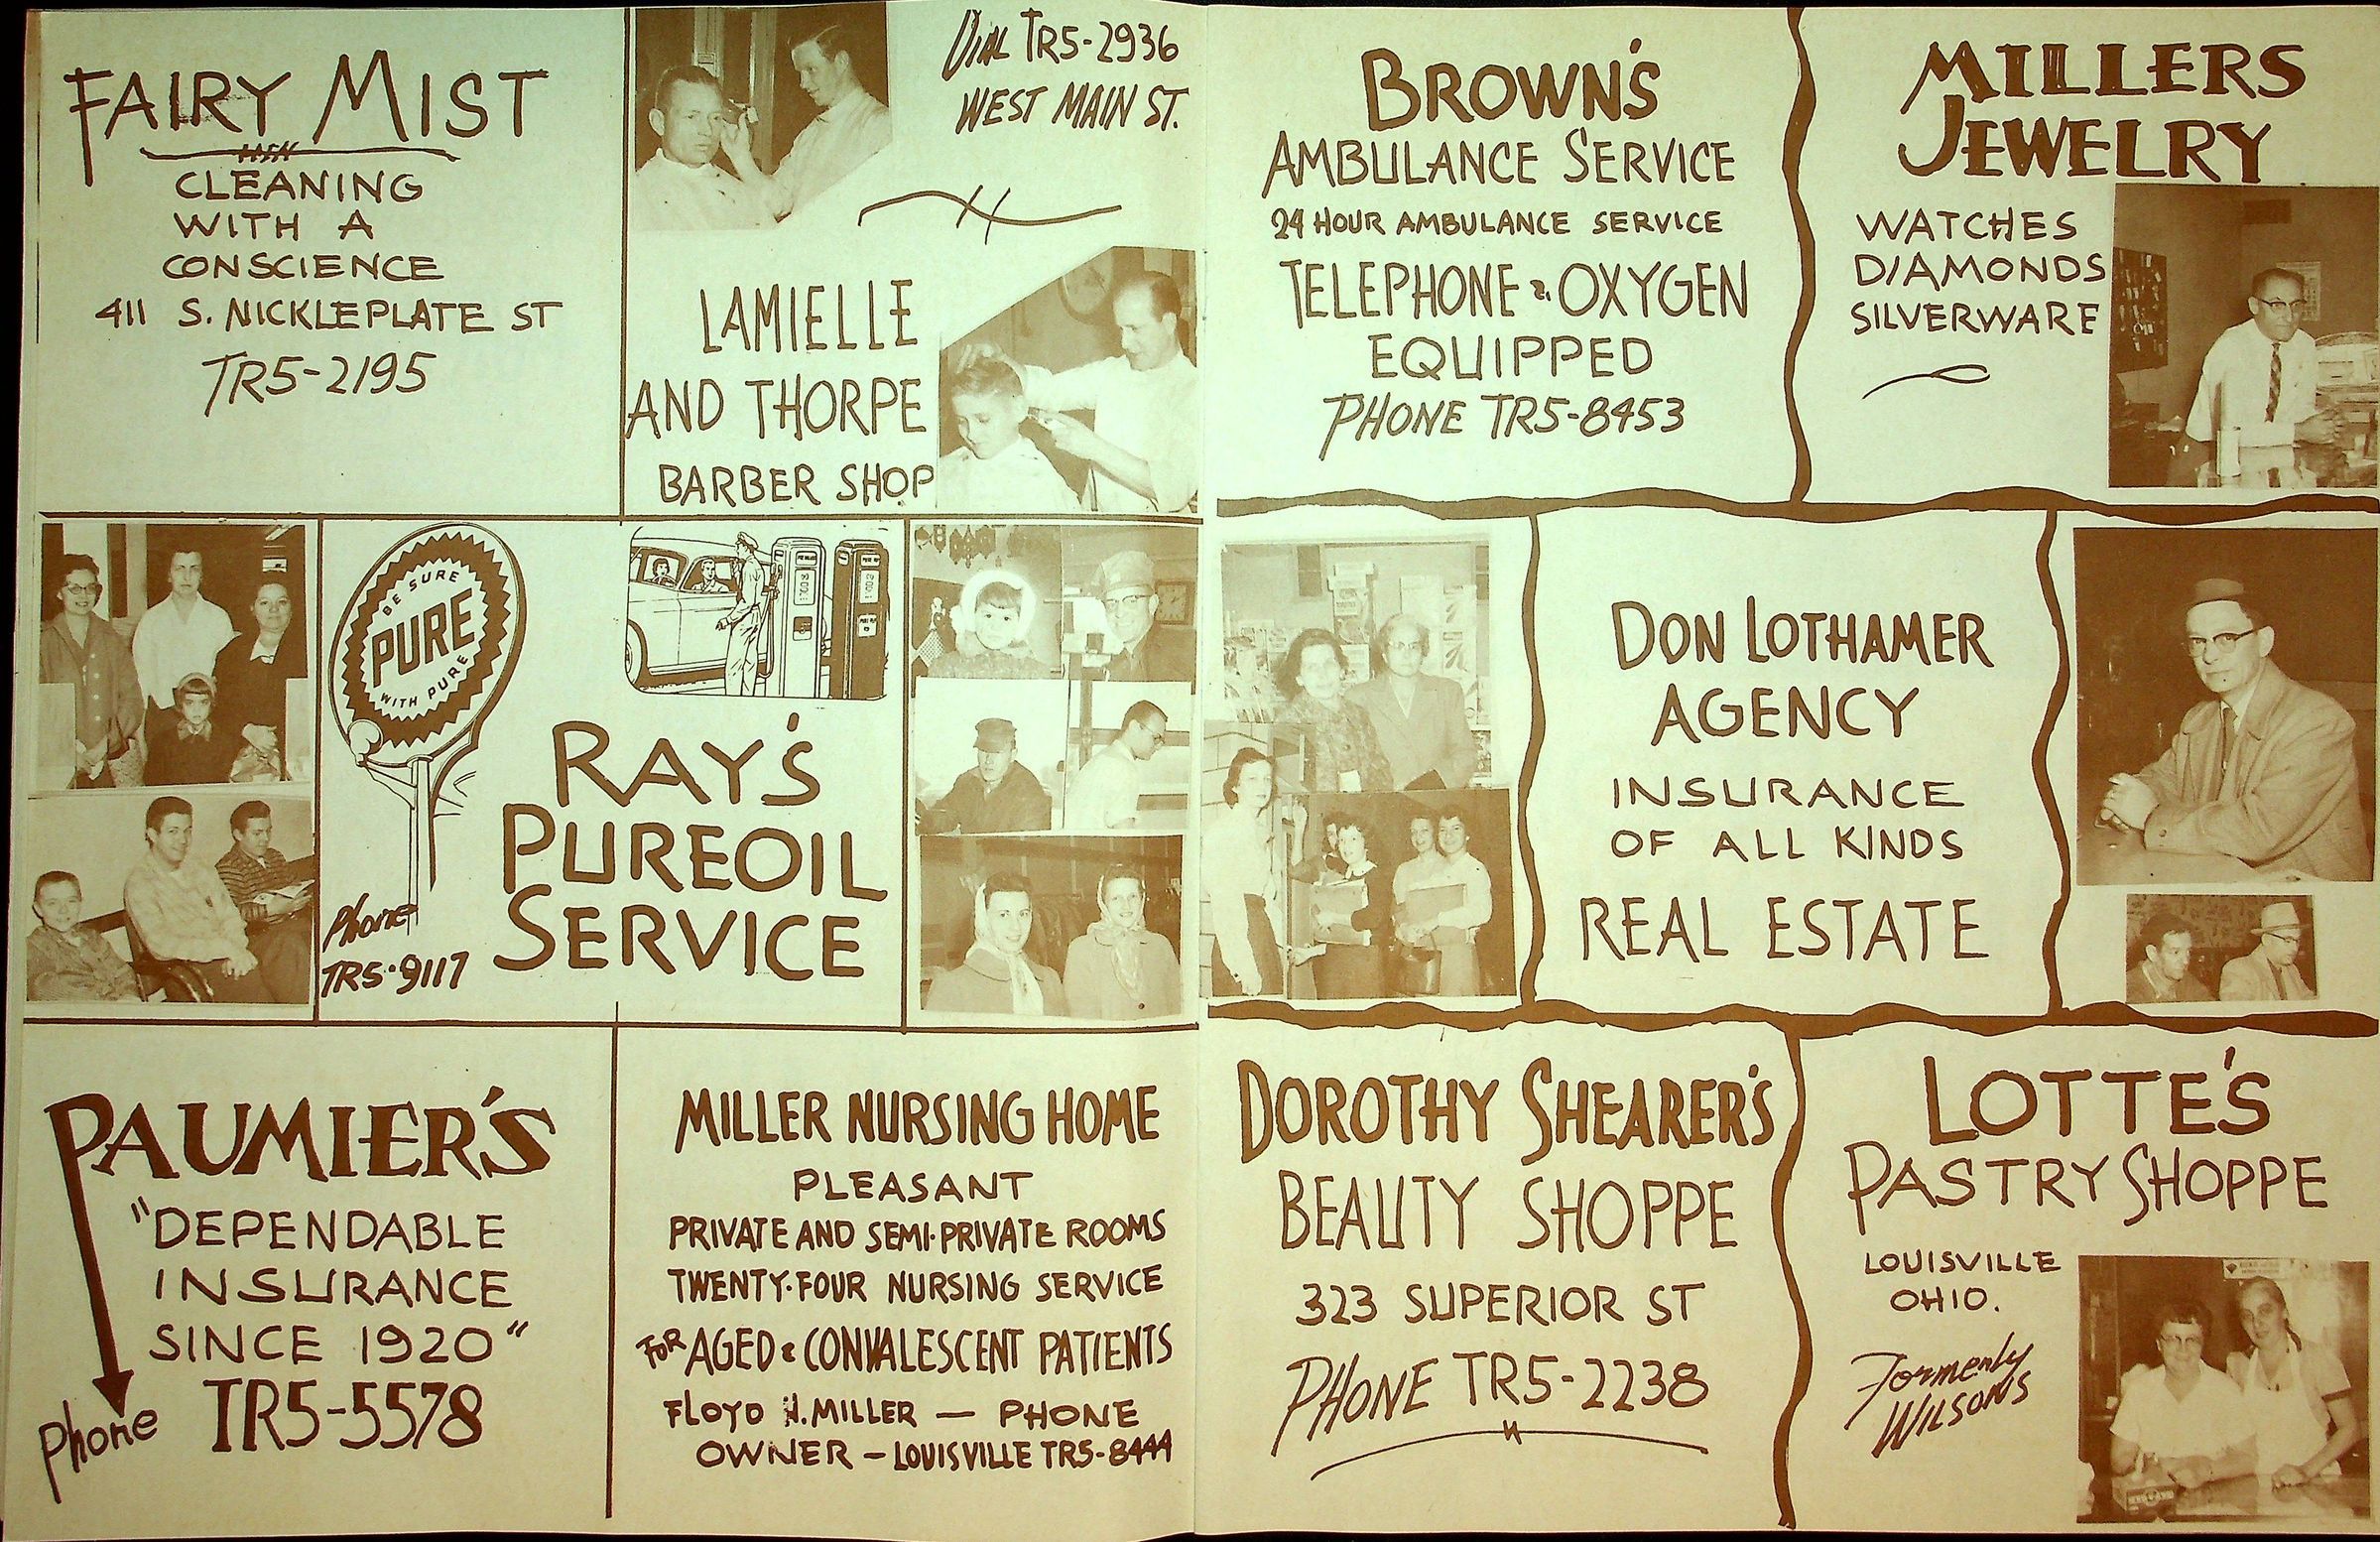 FAIRY MIST
CLEANING
WITH A
CONSCIENCE
411 S. NICKLEPLATE ST
TR5-2195
DIAL TR5-2936
WEST MAIN ST.
LAMIELLE
AND THORPE
BARBER SHOP
BE SURE
PURE
WITH PURE
RAY'S
PUREOIL
SERVICE
Phone
TR5-9117
PAUMIER'S
"DEPENDABLE
INSURANCE
SINCE 1920"
Phone TR5-5578
MILLER NURSING HOME
PLEASANT
PRIVATE AND SEMI-PRIVATE ROOMS
TWENTY-FOUR NURSING SERVICE
FOR AGED & CONVALESCENT PATIENTS
FLOYD H. MILLER — PHONE
OWNER — LOUISVILLE TR5-8444
BROWN'S
AMBULANCE SERVICE
24 HOUR AMBULANCE SERVICE
TELEPHONE & OXYGEN
EQUIPPED
PHONE TR5-8453
MILLERS
JEWELRY
WATCHES
DIAMONDS
SILVERWARE
DON LOTHAMER
AGENCY
INSURANCE
OF ALL KINDS
REAL ESTATE
DOROTHY SHEARER'S
BEAUTY SHOPPE
323 SUPERIOR ST
PHONE TR5-2238
LOTTE'S
PASTRY SHOPPE
LOUISVILLE
OHIO.
Formerly
WILSONS